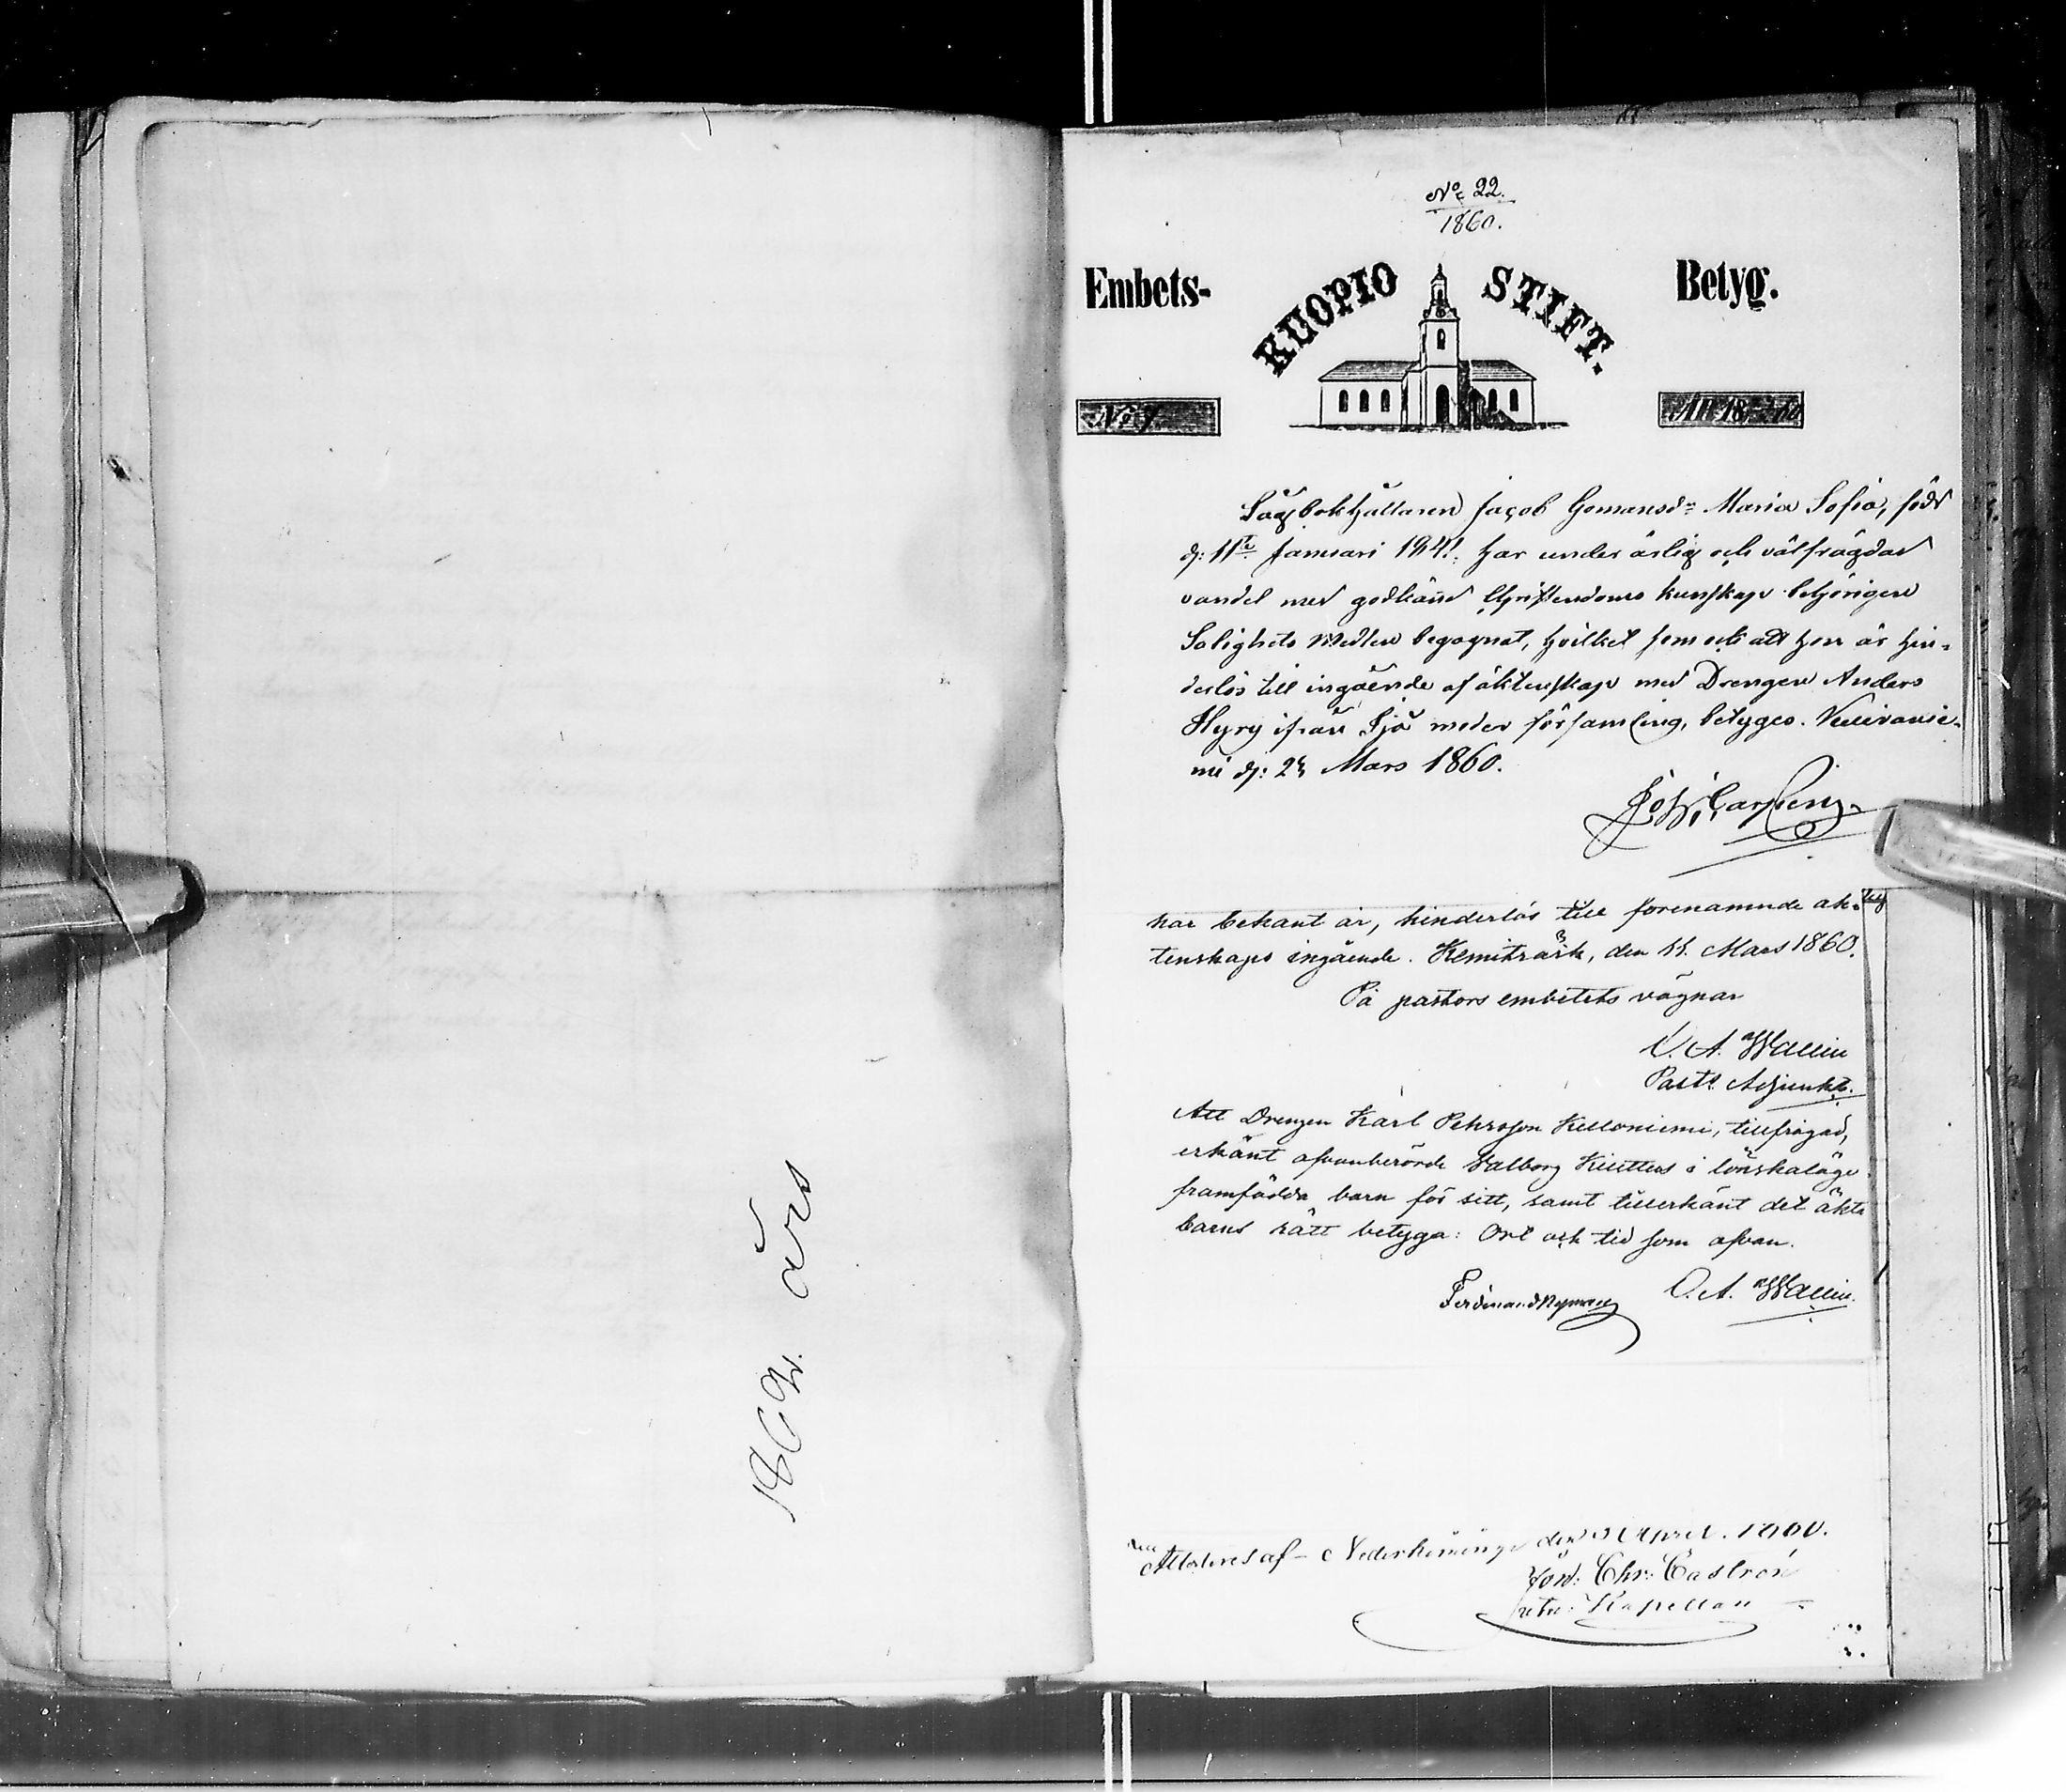 1862. års
No 22.
1860.
Embets-
KUOPIO STIFT.
Betyg.
No 7.
År 1860
Sågbokhållaren Jacob Gomansd:r Maria Sofia, född
d: 11te Januari 1841. har under ärlig och välfrägdad
vandel med godkänd Christendoms kunskap behörigen
Salighets Medlen begagnat, hvilket som och att hon är hin-
derlös till ingående af äktenskap med Drengen Anders
Hyry ifrån Ijo moder församling, betygas. Kuivanie-
mi d: 24 Mars 1860.
Joh. Carl
har bekant är, hinderlös till förenämnde äk-
tenskaps ingående. Kemiträsk, den 11. Mars 1860.
På pastors embetets vägnar
O. A. Wallin
Past: Adjunkt.
Att Drengen Karl Pehrsson Kelloniemi, tillfrågad,
erkänt ofvanberörde Valborg i lönskaläge
framfödda barn för sitt, samt tillerkänt det äkta
barns rätt betyga: Ort och tid som ofvan.
Ferdinand Nyman O. A. Wallin.
Attesteras af Nederkiminge den April. 1860.
Joh: Chr: Castrén
Kapellan